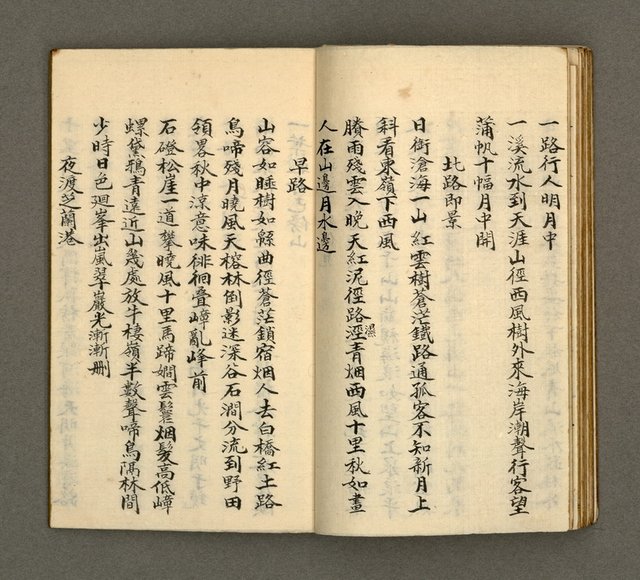 一路行人明月中
一溪流水到天涯山徑西風樹外來海岸潮聲行客望
蒲帆十幅月中開
北路即景
日銜滄海一山紅雲樹蒼茫鐵路通孤客不知新月上
斜看東嶺下西風
賸雨殘雲入晚天紅泥徑路溼青烟西風十里秋如畫
濕
人在山邊月水邊
早路
山容如睡樹如緜曲徑蒼茫鎖宿烟人去白橋紅土路
鳥啼殘月曉風天榕林倒影迷深谷石澗分流到野田
領畧秋中涼意味徘徊疊嶂亂峰前
石磴松崖一道攀曉風十里馬蹄嫺雲鬟烟髮高低嶂
螺黛鴉青遠近山幾處放牛棲嶺半數聲啼鳥隔林間
少時日色迴峯出嵐翠巖光漸漸刪
夜渡芝蘭港